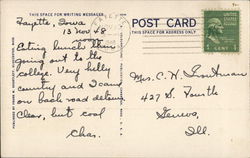 THIS SPACE FOR WRITING MESSAGES
POST CARD
THIS SPACE FOR ADDRESS ONLY
Fayette, Iowa
13 Nov 48
Eating lunch then
going out to the
college. Very hilly
country and I came
on back road detours.
Clear, but cool
Chas.
Mrs. C. H.
427 S. Fourth
Geneva,
Ill.